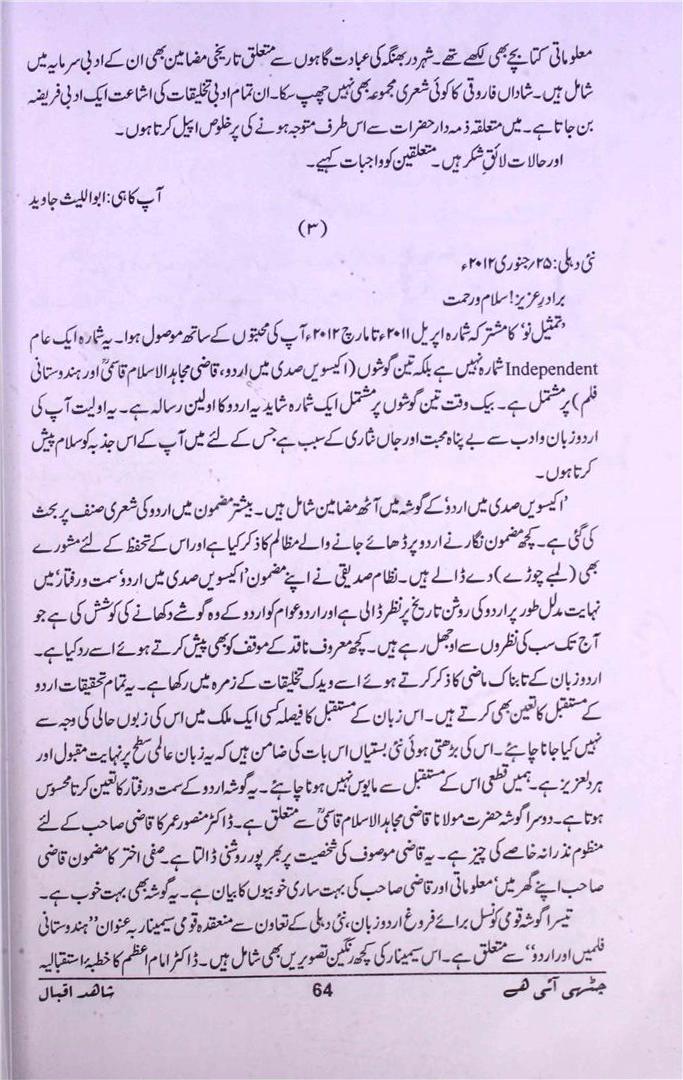 معلوماتی کتابچے بھی لکھے تھے۔ شہر دربھنگہ کی عبادت گاہوں سے متعلق تاریخی مضامین بھی ان کے ادبی سرمایہ میں
شامل ہیں۔ شاداں فاروقی کا کوئی شعری مجموعہ بھی نہیں چھپ سکا۔ ان تمام ادبی تخلیقات کی اشاعت ایک ادبی فریضہ
بن جاتا ہے۔ میں متعلقہ ذمہ دار حضرات سے اس طرف متوجہ ہونے کی پرخلوص اپیل کرتا ہوں۔
اور حالات لائقِ شکر ہیں۔ متعلقین کو واجبات کہیے۔
آپ کا ہی: ابواللیث جاوید
(۳)
نئی دہلی: ۲۵؍جنوری ۲۰۱۲ء
برادرِ عزیز! سلام و رحمت
’تمثیل نو‘ کا مشترکہ شمارہ اپریل ۲۰۱۱ء تا مارچ ۲۰۱۲ء آپ کی محبتوں کے ساتھ موصول ہوا۔ یہ شمارہ ایک عام
Independent شمارہ نہیں ہے بلکہ تین گوشوں (اکیسویں صدی میں اردو، قاضی مجاہد الاسلام قاسمیؒ اور ہندوستانی
فلم) پر مشتمل ہے۔ بیک وقت تین گوشوں پر مشتمل ایک شمارہ شاید یہ اردو کا اولین رسالہ ہے۔ یہ اولیت آپ کی
اردو زبان و ادب سے بے پناہ محبت اور جاں نثاری کے سبب ہے جس کے لئے میں آپ کے اس جذبہ کو سلام پیش
کرتا ہوں۔
’اکیسویں صدی میں اردو‘ کے گوشہ میں آٹھ مضامین شامل ہیں۔ بیشتر مضمون میں اردو کی شعری صنف پر بحث
کی گئی ہے۔ کچھ مضمون نگار نے اردو پر ڈھائے جانے والے مظالم کا ذکر کیا ہے اور اس کے تحفظ کے لئے مشورے
بھی (لمبے چوڑے) دے ڈالے ہیں۔ نظام صدیقی نے اپنے مضمون ’اکیسویں صدی میں اردو‘ سمت و رفتار‘ میں
نہایت مدلل طور پر اردو کی روشن تاریخ پر نظر ڈالی ہے اور اردو عوام کو اردو کے وہ گوشے دکھانے کی کوشش کی ہے جو
آج تک سب کی نظروں سے اوجھل رہے ہیں۔ کچھ معروف ناقد کے موقف کو بھی پیش کرتے ہوئے اسے رد کیا ہے۔
اردو زبان کے تابناک ماضی کا ذکر کرتے ہوئے اسے ویدک تخلیقات کے زمرہ میں رکھا ہے۔ یہ تمام تحقیقات اردو
کے مستقبل کا تعین بھی کرتے ہیں۔ اس زبان کے مستقبل کا فیصلہ کسی ایک ملک میں اس کی زبوں حالی کی وجہ سے
نہیں کیا جانا چاہئے۔ اس کی بڑھتی ہوئی نئی بستیاں اس بات کی ضامن ہیں کہ یہ زبان عالمی سطح پر نہایت مقبول اور
ہر دلعزیز ہے۔ ہمیں قطعی اس کے مستقبل سے مایوس نہیں ہونا چاہئے۔ یہ گوشہ اردو کے سمت و رفتار کا تعین کرتا محسوس
ہوتا ہے۔ دوسرا گوشہ حضرت مولانا قاضی مجاہد الاسلام قاسمیؒ سے متعلق ہے۔ ڈاکٹر منصور عمر کا قاضی صاحب کے لئے
منظوم نذرانہ خاصے کی چیز ہے۔ یہ قاضی موصوف کی شخصیت پر بھرپور روشنی ڈالتا ہے۔ صفی اختر کا مضمون قاضی
صاحب اپنے گھر میں‘ معلوماتی اور قاضی صاحب کی بہت ساری خوبیوں کا بیان ہے۔ یہ گوشہ بھی بہت خوب ہے۔
تیسرا گوشہ قومی کونسل برائے فروغ اردو زبان، نئی دہلی کے تعاون سے منعقدہ قومی سیمینار بہ عنوان ’’ہندوستانی
فلمیں اور اردو‘‘ سے متعلق ہے۔ اس سیمینار کی کچھ رنگین تصویریں بھی شامل ہیں۔ ڈاکٹر امام اعظم کا خطبۂ استقبالیہ
چٹھی آئی ھے 64 شاھد اقبال